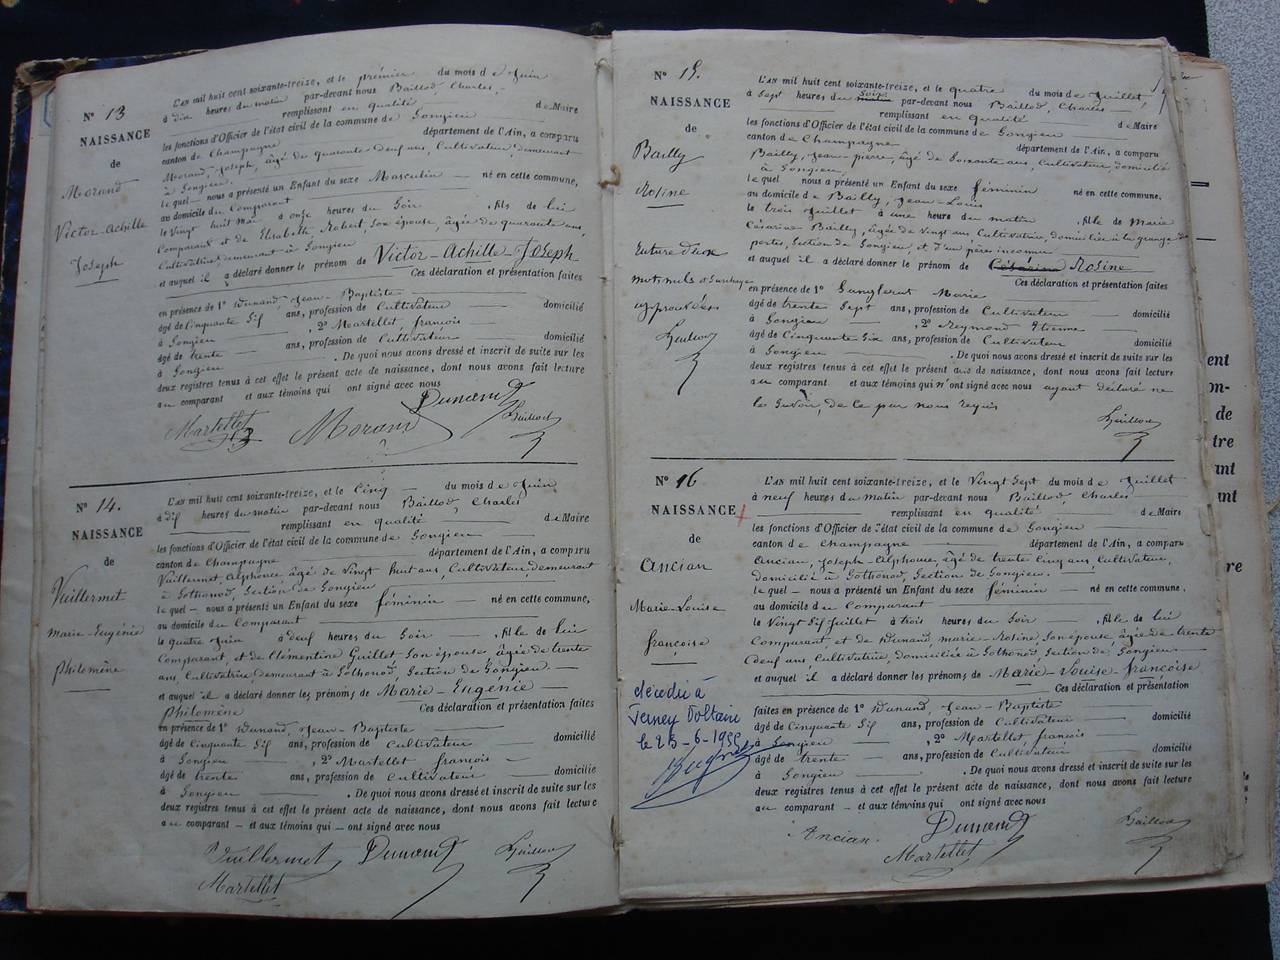 Nº 13
NAISSANCE
de
Morand
Victor-Achille
Joseph
L'AN mil huit cent soixante-treize, et le premier du mois de Juin
à dix heures du matin par-devant nous Baillod, Charles,
remplissant en qualité de Maire
les fonctions d'Officier de l'état civil de la commune de Songieu
canton de Champagne département de l'Ain, a comparu
Morand, Joseph, âgé de quarante neuf ans, Cultivateur, demeurant
à Songieu
le quel nous a présenté un Enfant du sexe Masculin né en cette commune,
au domicile du Comparant
le vingt huit Mai à onze heures du Soir, fils de lui
Comparant et de Elisabeth Robert, Son épouse, âgée de quarante ans,
Cultivatrice, demeurant à Songieu
et auquel il a déclaré donner le prénom de Victor-Achille-Joseph
Ces déclaration et présentation faites
en présence de 1º Dunand, Jean-Baptiste
âgé de Cinquante Six ans, profession de Cultivateur domicilié
à Songieu, 2º Martellet, françois
âgé de trente ans, profession de Cultivateur domicilié
à Songieu. De quoi nous avons dressé et inscrit de suite sur les
deux registres tenus à cet effet le présent acte de naissance, dont nous avons fait lecture
au comparant et aux témoins qui ont signé avec nous
Dunand
Martellet Morand Baillod
Nº 14.
NAISSANCE
de
Vuillermet
Marie-Eugénie
Philomène
L'AN mil huit cent soixante-treize, et le Cinq du mois de Juin
à dix heures du matin par-devant nous Baillod, Charles
remplissant en qualité de Maire
les fonctions d'Officier de l'état civil de la commune de Songieu
canton de Champagne département de l'Ain, a comparu
Vuillermet, Alphonse, âgé de vingt huit ans, Cultivateur, demeurant
à Sothonod, Section de Songieu
le quel nous a présenté un Enfant du sexe féminin né en cette commune,
au domicile du Comparant
le quatre Juin à neuf heures du Soir, fille de lui
Comparant, et de Clémentine Guillet Son épouse âgée de trente
ans, Cultivatrice demeurant à Sothonod, Section de Songieu.
et auquel il a déclaré donner les prénoms de Marie-Eugénie
Philomène Ces déclaration et présentation faites
en présence de 1º Dunand, Jean-Baptiste
âgé de Cinquante Six ans, profession de Cultivateur domicilié
à Songieu, 2º Martellet françois
âgé de trente ans, profession de Cultivateur domicilié
à Songieu. De quoi nous avons dressé et inscrit de suite sur les
deux registres tenus à cet effet le présent acte de naissance, dont nous avons fait lecture
au comparant et aux témoins qui ont signé avec nous
Vuillermet Dunand Baillod
Martellet
Nº 15.
NAISSANCE
de
Bailly
Rosine
Rature d'un
mot nuls et Surcharge
approuvées
Baillod
L'AN mil huit cent soixante-treize, et le quatre du mois de Juillet,
à Sept heures du matin Soir par-devant nous Baillod, Charles
remplissant en qualité de Maire
les fonctions d'Officier de l'état civil de la commune de Songieu
canton de Champagne département de l'Ain, a comparu
Bailly, Jean-pierre, âgé de Soixante ans, Cultivateur domicilié
à Songieu
le quel nous a présenté un Enfant du sexe féminin né en cette commune,
au domicile de Bailly, Jean-Louis
le trois Juillet à une heure du matin, fille de Marie
Césarine Bailly, âgée de Vingt ans Cultivatrice, domiciliée à la grange de
portes, Section de Songieu, et d'un père inconnu
et auquel il a déclaré donner le prénom de Césarine Rosine
Ces déclaration et présentation faites
en présence de 1º Marie
âgé de trente Sept ans, profession de Cultivateur domicilié
à Songieu, 2º Reymond Etienne
âgé de Cinquante Six ans, profession de Cultivateur domicilié
à Songieu. De quoi nous avons dressé et inscrit de suite sur les
deux registres tenus à cet effet le présent acte de naissance, dont nous avons fait lecture
au comparant et aux témoins qui n'ont signé avec nous ayant déclaré ne
les Savoir, de ce par nous requis
Baillod
Nº 16
NAISSANCE
de
Ancian
Marie-Louise
françoise
décédée à
Ferney Voltaire
le 25-6-1955
L'AN mil huit cent soixante-treize, et le Vingt Sept du mois de Juillet
à neuf heures du matin par-devant nous Baillod, Charles
remplissant en qualité de Maire
les fonctions d'Officier de l'état civil de la commune de Songieu
canton de Champagne département de l'Ain, a comparu
Ancian, Joseph-Alphonse, âgé de trente Cinq ans, Cultivateur,
domicilié à Sothonod, Section de Songieu.
le quel nous a présenté un Enfant du sexe féminin né en cette commune,
au domicile du Comparant
le Vingt Six Juillet à trois heures du Soir, fille de lui
Comparant, et de Dunand, marie-Rosine Son épouse âgée de trente
Neuf ans, Cultivatrice, domiciliée à Sothonod, Section de Songieu
et auquel il a déclaré donner les prénoms de Marie-Louise-françoise
Ces déclaration et présentation
faites en présence de 1º Dunand, Jean-Baptiste
âgé de Cinquante Six ans, profession de Cultivateur domicilié
à Songieu, 2º Martellet françois
âgé de trente ans, profession de Cultivateur domicilié
à Songieu. De quoi nous avons dressé et inscrit de suite sur les
deux registres tenus à cet effet le présent acte de naissance, dont nous avons fait lecture
au comparant et aux témoins qui ont signé avec nous
Ancian. Dunand Baillod
Martellet
ent
on-
de
tre
ant
nt
re